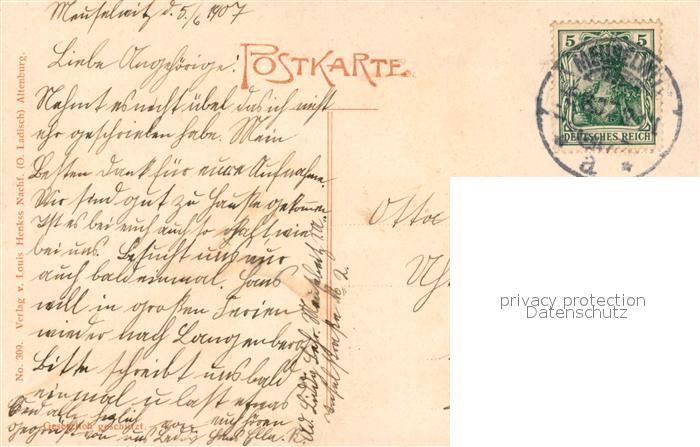 Meuselwitz d. 5./6 1907
Liebe Angehörige!
POSTKARTE.
Nehmt es nicht übel das ich nicht
ehr geschrieben habe. Mein
Besten Dank für eure Aufnahme.
Wir sind gut zu Hause gekommen.
Ist es bei euch auch so kalt wie
bei uns. Besucht uns nur
auch bald einmal. Hans
will in großen Ferien
wieder nach Langenberg
Bitte schreibt uns bald
einmal u last etwas
von euch hören
Seid alle herzlich
gegrüßt von uns
Gesetzlich geschützt.
No. 309. Verlag v. Louis Henkss Nachf. (O. Ladisch) Altenburg.
Meuselwitz
5 5
DEUTSCHES REICH
MEUSELWITZ
a
Otto
privacy protection
Datenschutz